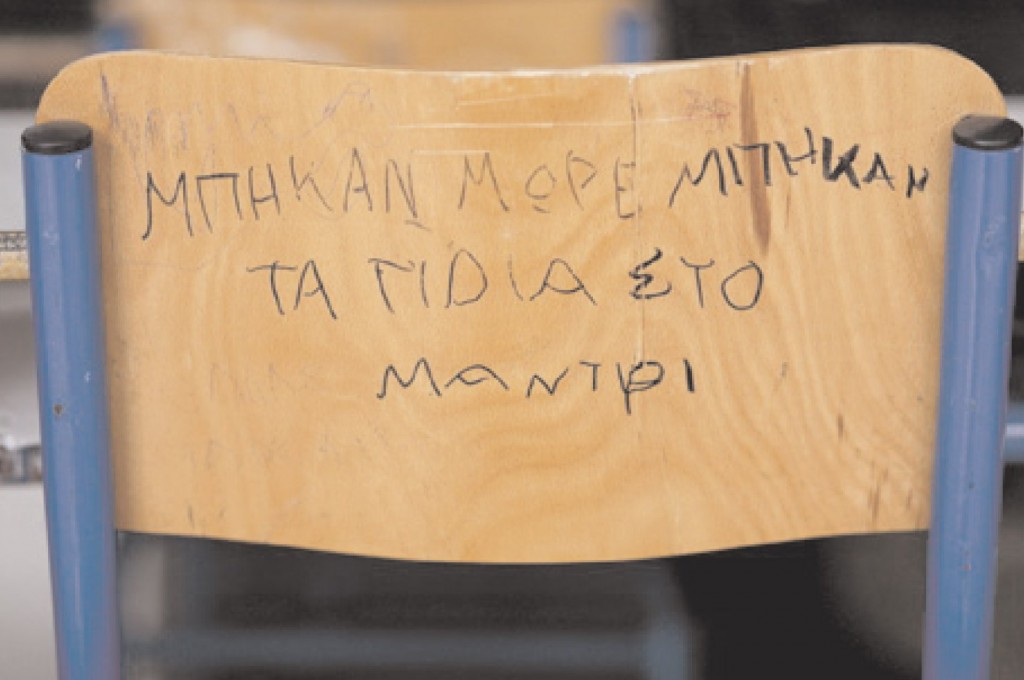 ΜΠΗΚΑΝ ΜΩΡΕ ΜΠΗΚΑΝ
ΤΑ ΓΙΔΙΑ ΣΤΟ
ΜΑΝΤΡΙ